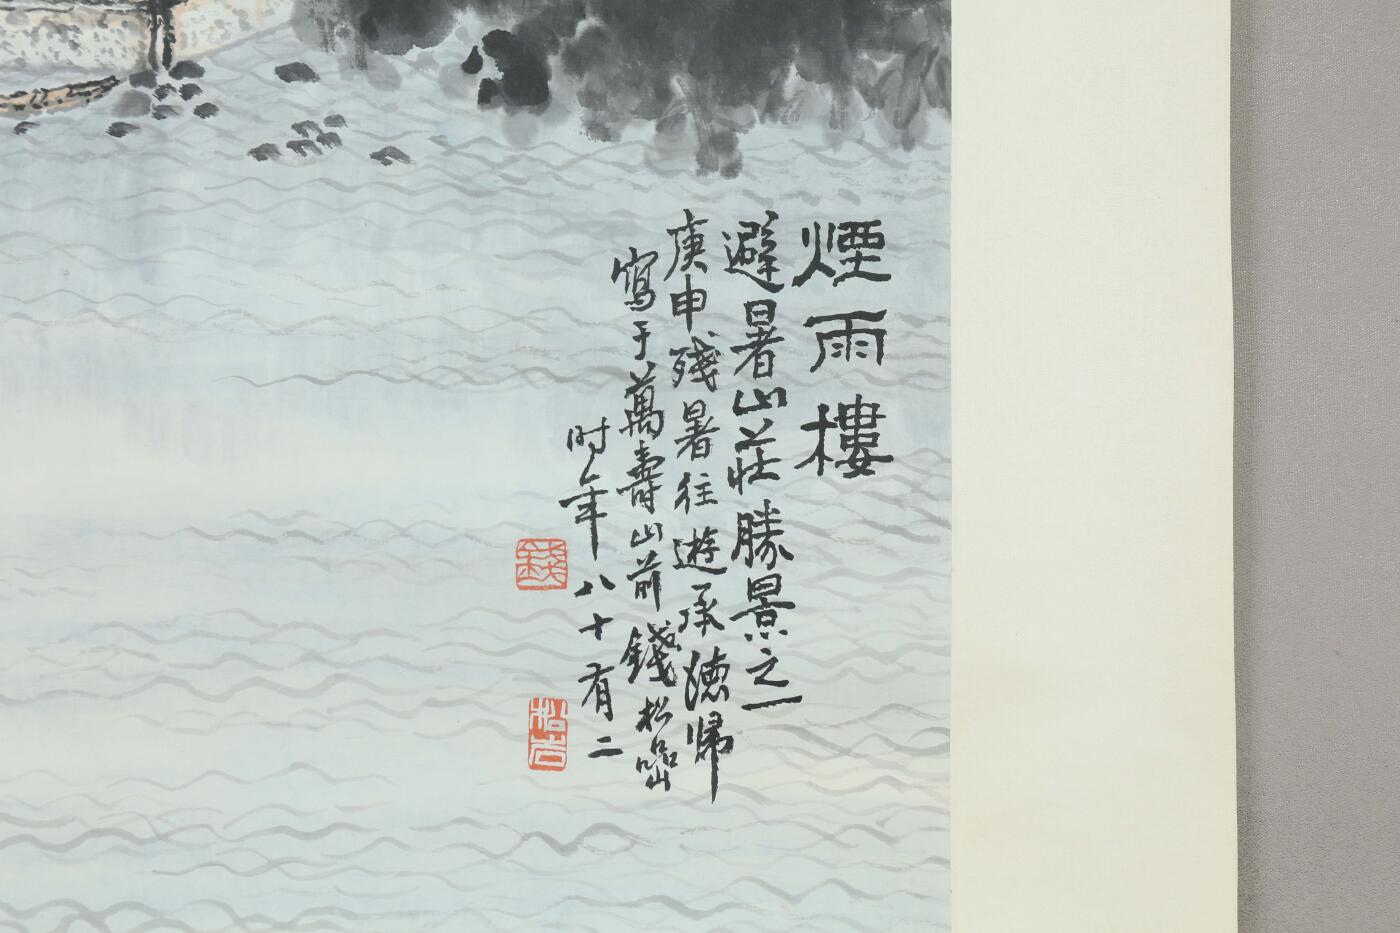 煙雨樓
避暑山莊勝景之一
庚申殘暑往遊承德歸
寫于萬壽山前錢松喦
时年八十有二
錢
松喦